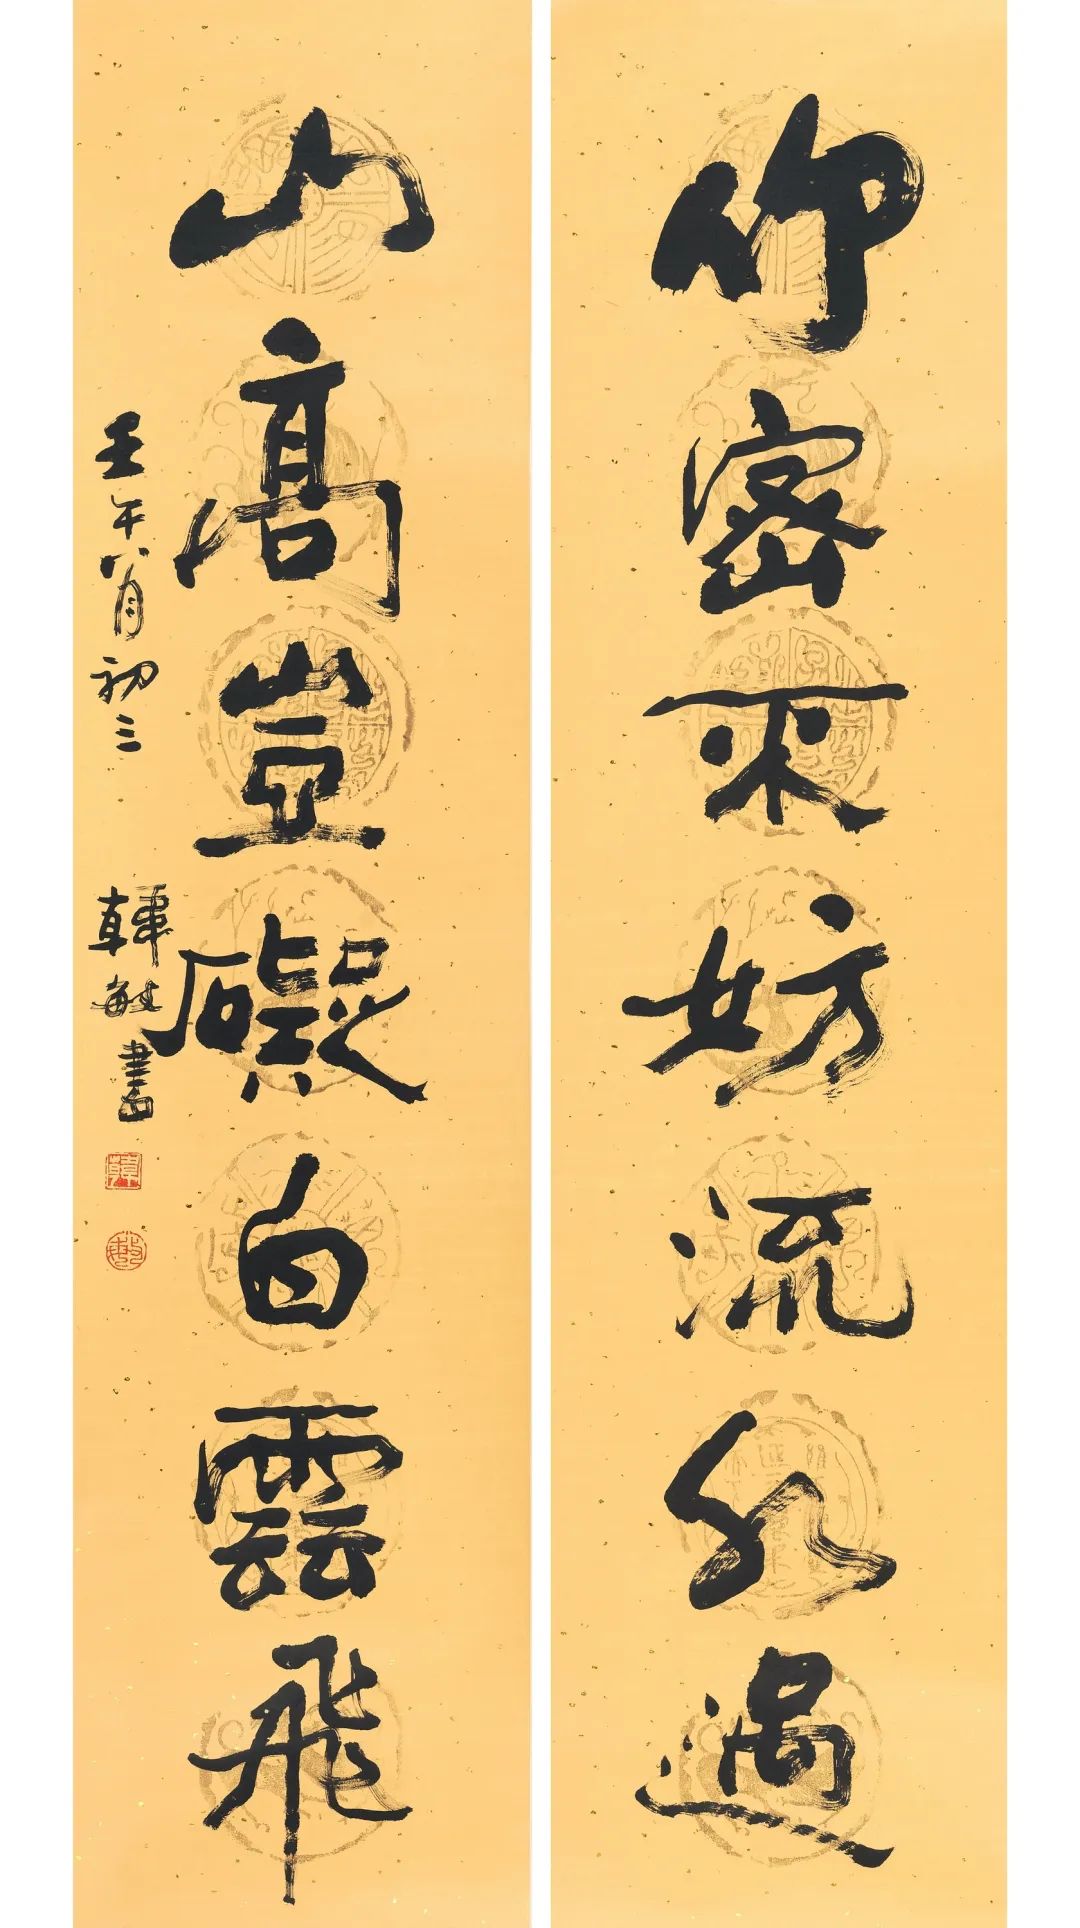 竹密不妨流水過
山高豈礙白雲飛
壬午八月初三 韓敏書
韓
敏